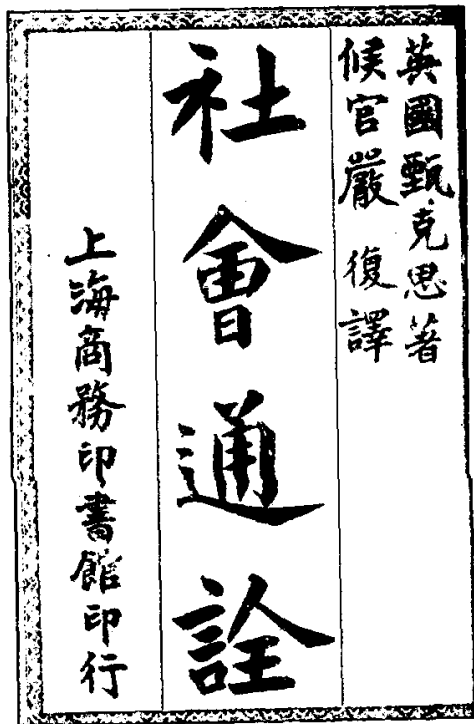 英國甄克思著
候官嚴復譯
社會通詮
上海商務印書館印行